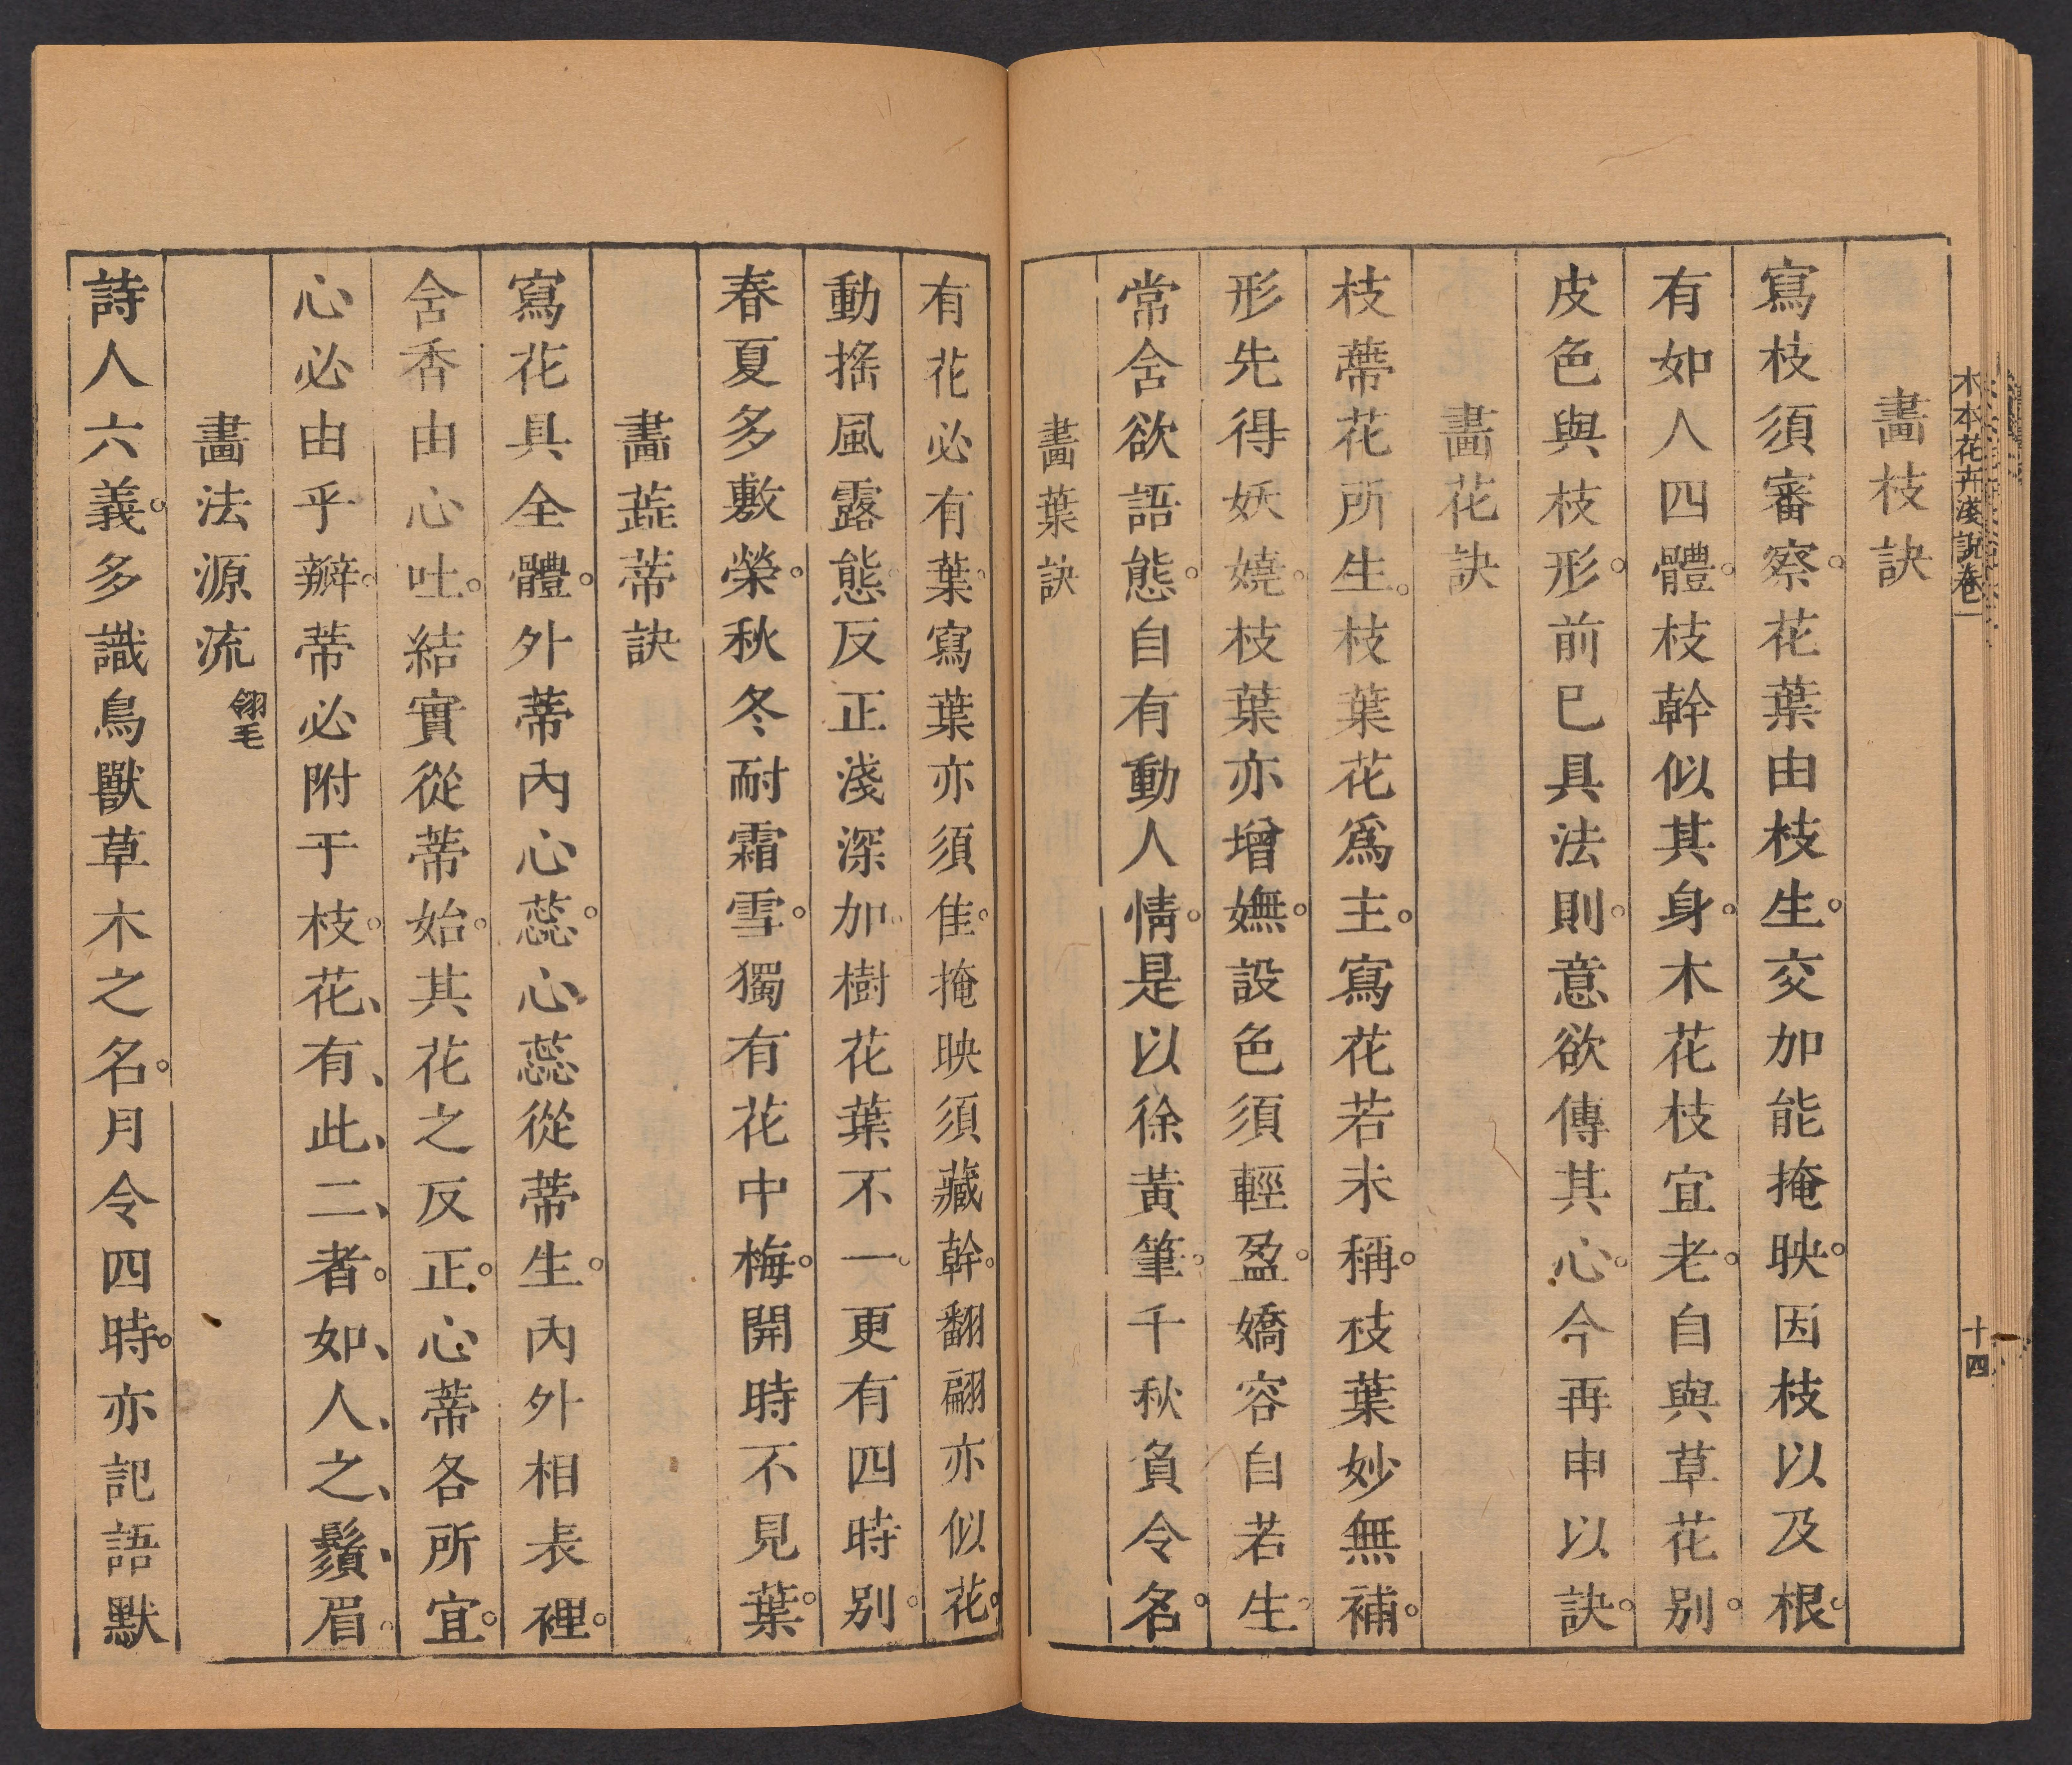 木本花卉淺說卷一
十四
畫枝訣
寫枝須審察。花葉由枝生。交加能掩映。因枝以及根。
有如人四體。枝幹似其身。木花枝宜老。自與草花別。
皮色與枝形。前已具法則。意欲傳其心。今再申以訣。
畫花訣
枝蔕花所生。枝葉花爲主。寫花若未稱。枝葉妙無補。
形先得妖嬈。枝葉亦增嫵。設色須輕盈。嬌容自若生。
常含欲語態。自有動人情。是以徐黃筆。千秋負令名。
畫葉訣
有花必有葉。寫葉亦須佳。掩映須藏幹。翻翩亦似花。
動搖風露態。反正淺深加。樹花葉不一。更有四時別。
春夏多敷榮。秋冬耐霜雪。獨有花中梅。開時不見葉。
畫蕋蒂訣
寫花具全體。外蒂內心蕊。心蕊從蒂生。內外相表裡。
含香由心吐。結實從蒂始。其花之反正。心蒂各所宜。
心必由乎瓣。蒂必附于枝。花、有、此、二、者。如、人、之、鬚、眉。
畫法源流翎毛
詩人六義。多識鳥獸草木之名。月令四時。亦記語默